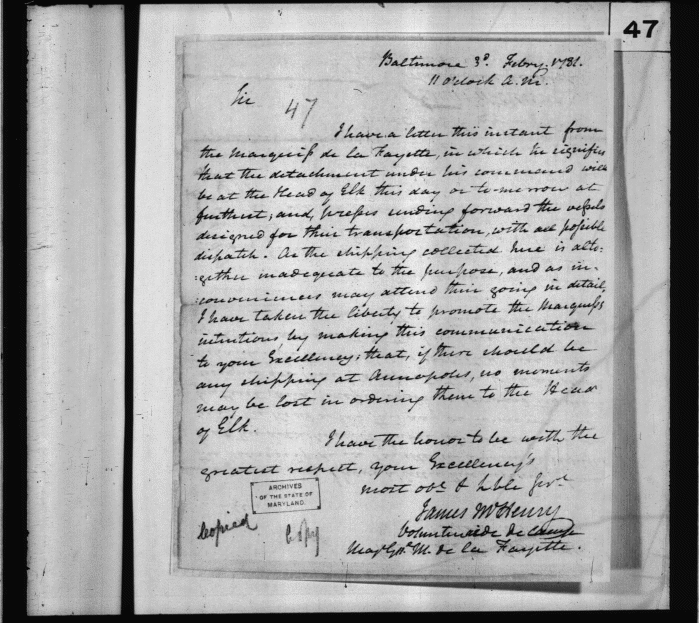 47
Baltimore 3d. Febry. 1781.
11 o'clock A.M.
Sir
47
I have a letter this instant from
the Marquiss de la Fayette, in which he signifies
that the detachment under his command will
be at the Head of Elk this day or to-morrow at
furthest; and, presses sending forward the vessels
designed for their transportation, with all possible
dispatch. As the shipping collected here is alto-
gether inadequate to the purpose, and as in-
conveniences may attend their going in detail,
I have taken the liberty to promote the Marquiss's
intentions by making this communication
to your Excellency; that, if there should be
any shipping at Annapolis, no moments
may be lost in ordering them to the Head
of Elk.
I have the honor to be with the
greatest respect, your Excellency's
most obt. & hble Servt.
James McHenry
Volunteer aide de camp
Majr. Gnl. M. de la Fayette.
ARCHIVES
OF THE STATE OF
MARYLAND.
Copied
Copy